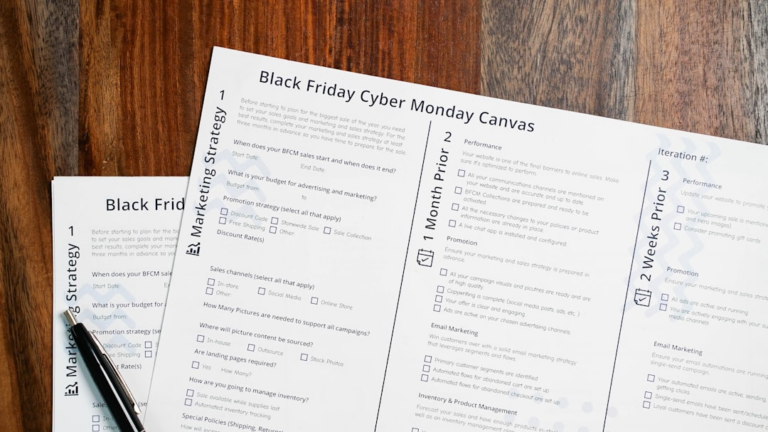 Black Friday Cyber Monday Canvas
Iteration #:
1
Marketing Strategy
Before starting to plan for the biggest sale of the year, you need
to set your sales goals and marketing and sales strategy. For the
best results, complete your marketing and sales strategy at least
three months in advance so you have time to prepare for the sale.
When does your BFCM sales start and when does it end?
Start Date
End Date
What is your budget for advertising and marketing?
Budget from
to
Promotion strategy (select all that apply)
Discount Code
Storewide Sale
Sale Collection
Free Shipping
Other
Discount Rate(s)
Sales channels (select all that apply)
In-store
Social Media
Online Store
Other
How Many Pictures are needed to support all campaigns?
Where will picture content be sourced?
In-House
Outsource
Stock Photos
Are landing pages required?
Yes
How Many?
How are you going to manage inventory?
Sale available while supplies last
Automated inventory tracking
Special Policies (Shipping, Return
2
1 Month Prior
Performance
Your website is one of the final barriers to online sales. Make
sure it's optimized to perform.
All your communications channels are mentioned on
your website and are accurate and up to date.
BFCM Collections are prepared and ready to be
activated.
All the necessary changes to your policies or product
information are already in place
A live chat app is installed and configured.
Promotion
Ensure your marketing and sales strategy is prepared in
advance.
All your campaign visuals and photos are ready and are
of high quality
Copywriting is complete (social media posts, ads, etc. )
Your offer is clear and engaging
Ads are active on your chosen advertising channels.
Email Marketing
Win customers over with a solid email marketing strategy
that leverages segments and flows.
Primary customer segments are identified
Automated flows for abandoned cart are set up
Automated flows for abandoned checkout are set up
Inventory & Product Management
Forecast your sales and have enough products
well as an inventory management
3
2 Weeks Prior
Performance
Update your website to promote
Your upcoming sale is
and hero images)
Consider promoting gift cards.
Promotion
Ensure your marketing and sales strate
All ads are active and running
You are actively engaging with your
media channels
Email Marketing
Ensure your email automations are running
single-send campaign
Your automated emails are active, sending
getting
Single-send emails have been
Lost customers have been sent a discount
Black Frid
1
Marketing Strategy
Before starting to plan for the bigg
to set your sales goals and market
best results, complete your market
three months in advance so you ha
When does your BFCM sale
Start Date
What is your budget for
Budget from
Promotion strategy (se
Discount Code
Free Shipping
Rate(s)
Sales channels
In-sto
Other